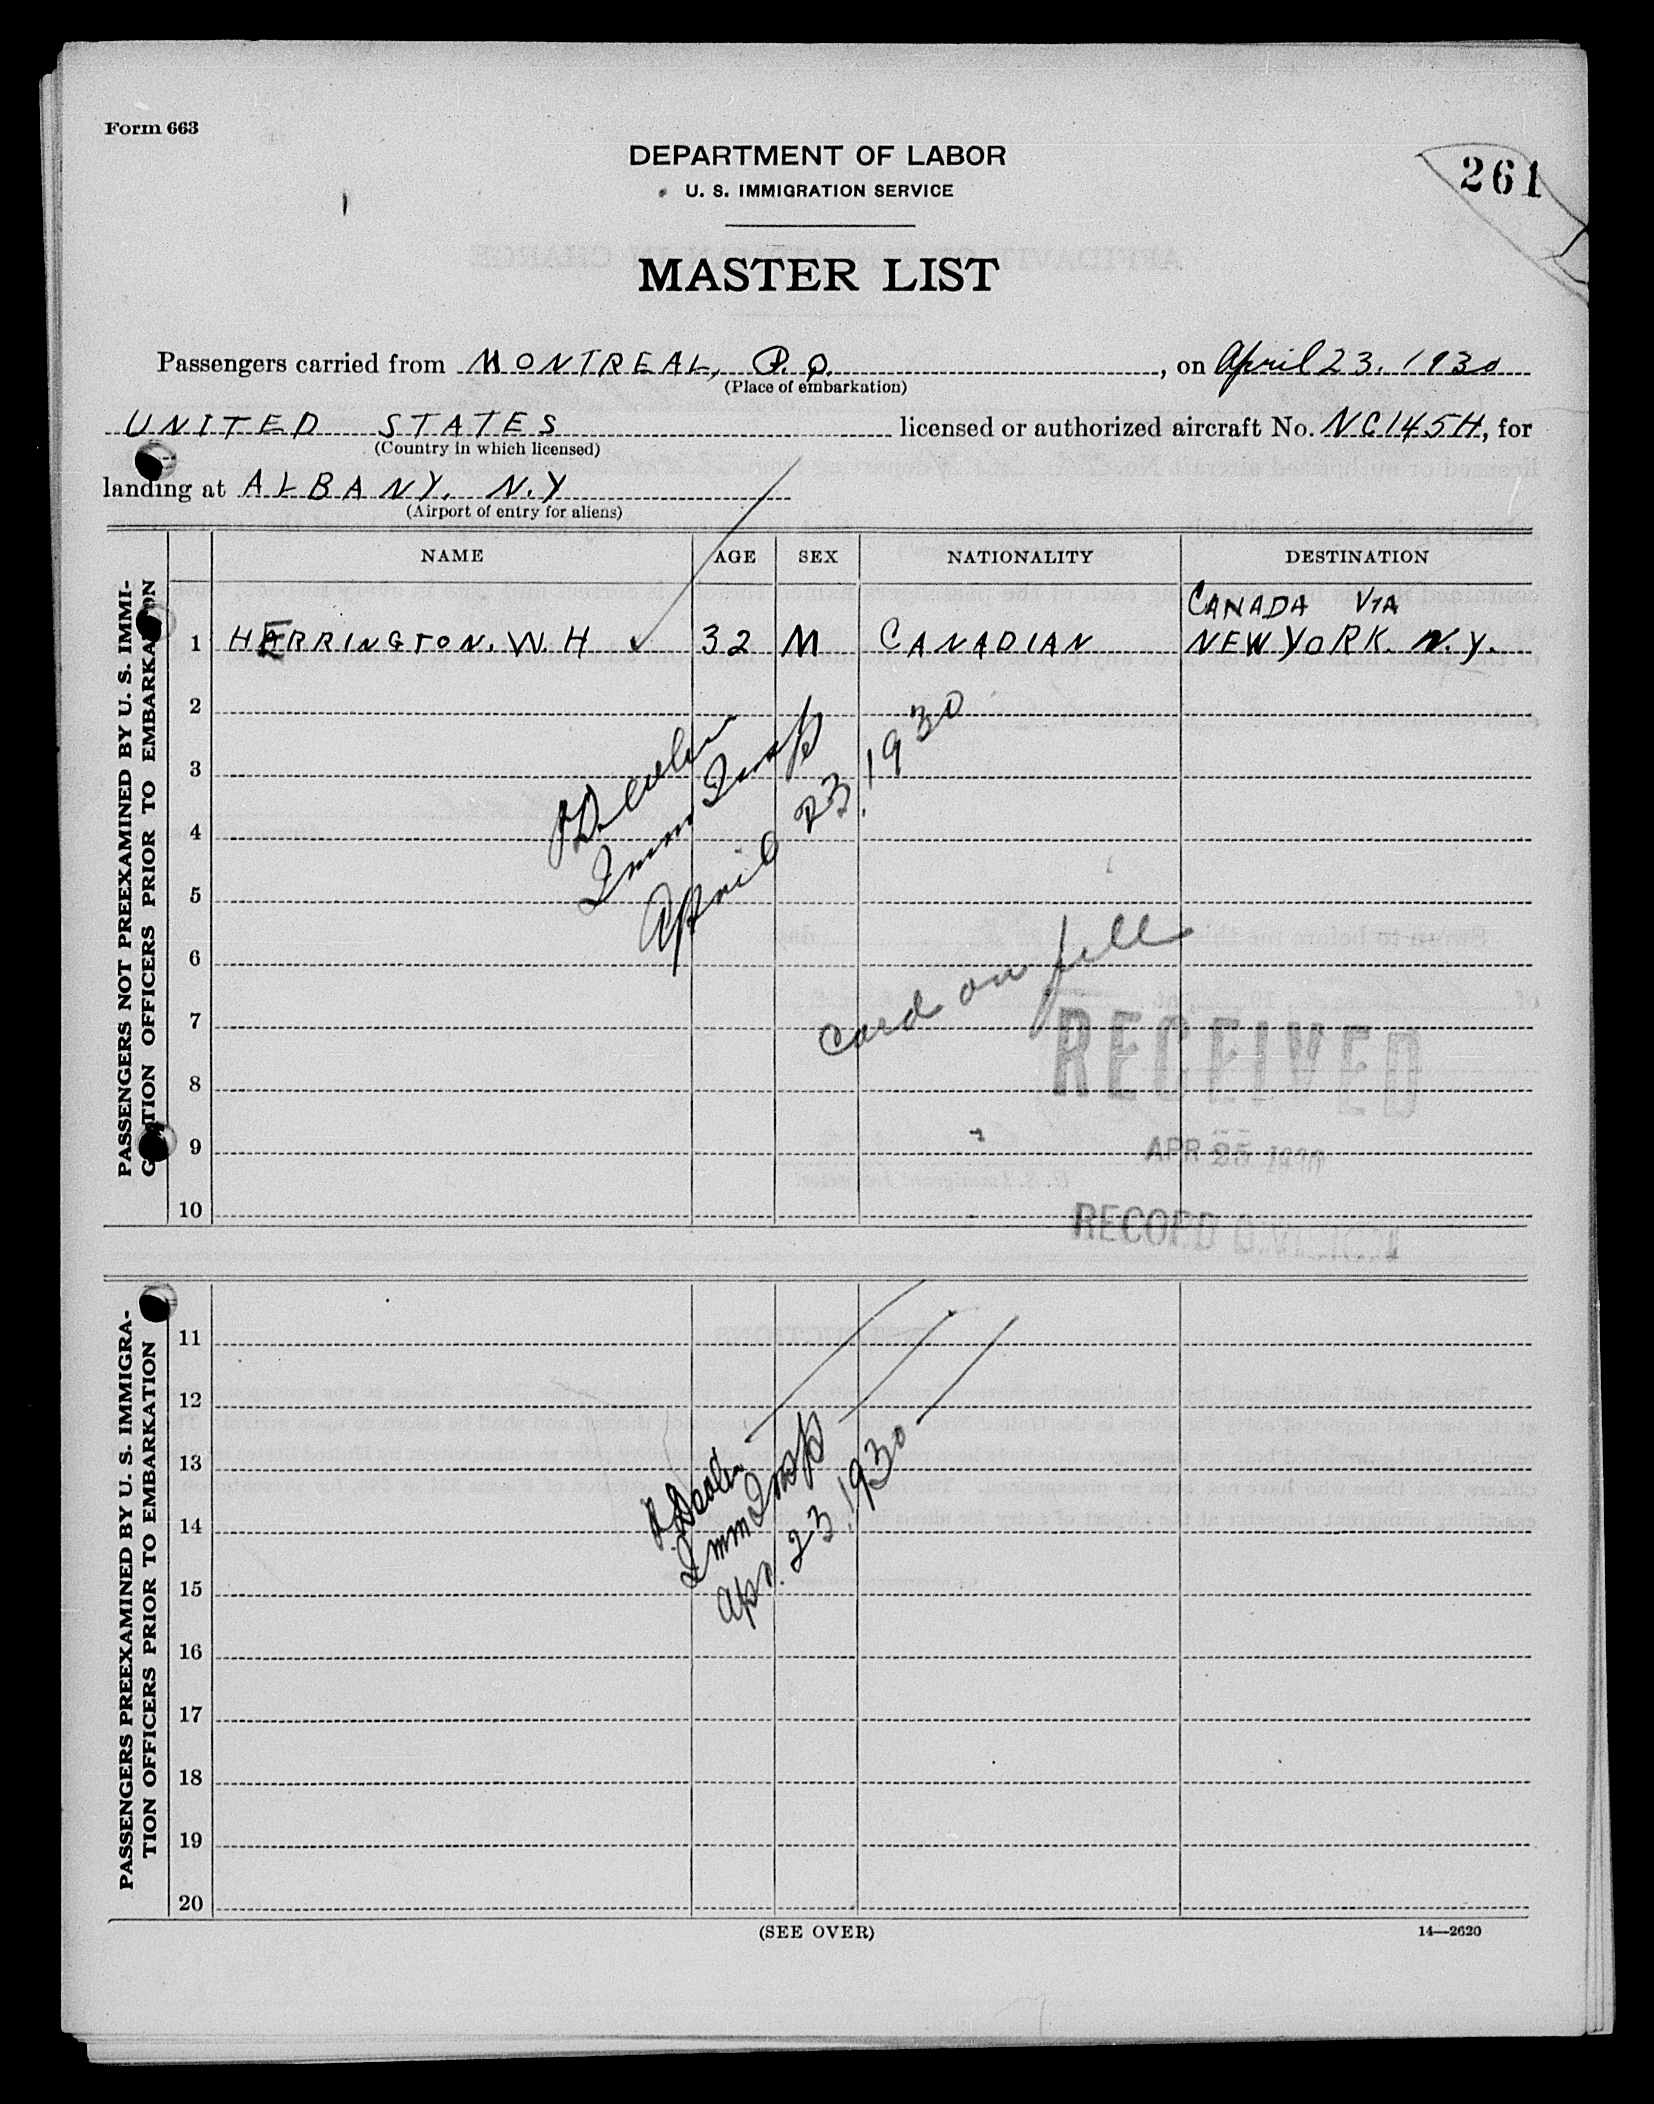 Form 663
DEPARTMENT OF LABOR
U. S. IMMIGRATION SERVICE
261
MASTER LIST
Passengers carried from MONTREAL, P. Q. , on April 23, 1930
(Place of embarkation)
UNITED STATES licensed or authorized aircraft No. NC145H, for
(Country in which licensed)
landing at ALBANY, N.Y
(Airport of entry for aliens)
NAME AGE SEX NATIONALITY DESTINATION
PASSENGERS NOT PREEXAMINED BY U. S. IMMI-
GRATION OFFICERS PRIOR TO EMBARKATION
CANADA VIA
1 HERRINGTON, W. H 32 M CANADIAN NEW YORK. N.Y.
2
3
4
5
6
7
8
9
10
Imm Insp
April 23, 1930
card on file
RECEIVED
APR 25
RECORD DIVISION
PASSENGERS PREEXAMINED BY U. S. IMMIGRA-
TION OFFICERS PRIOR TO EMBARKATION
11
12
13
14
15
16
17
18
19
20
Imm Insp
Apr. 23, 1930
(SEE OVER)
14—2620